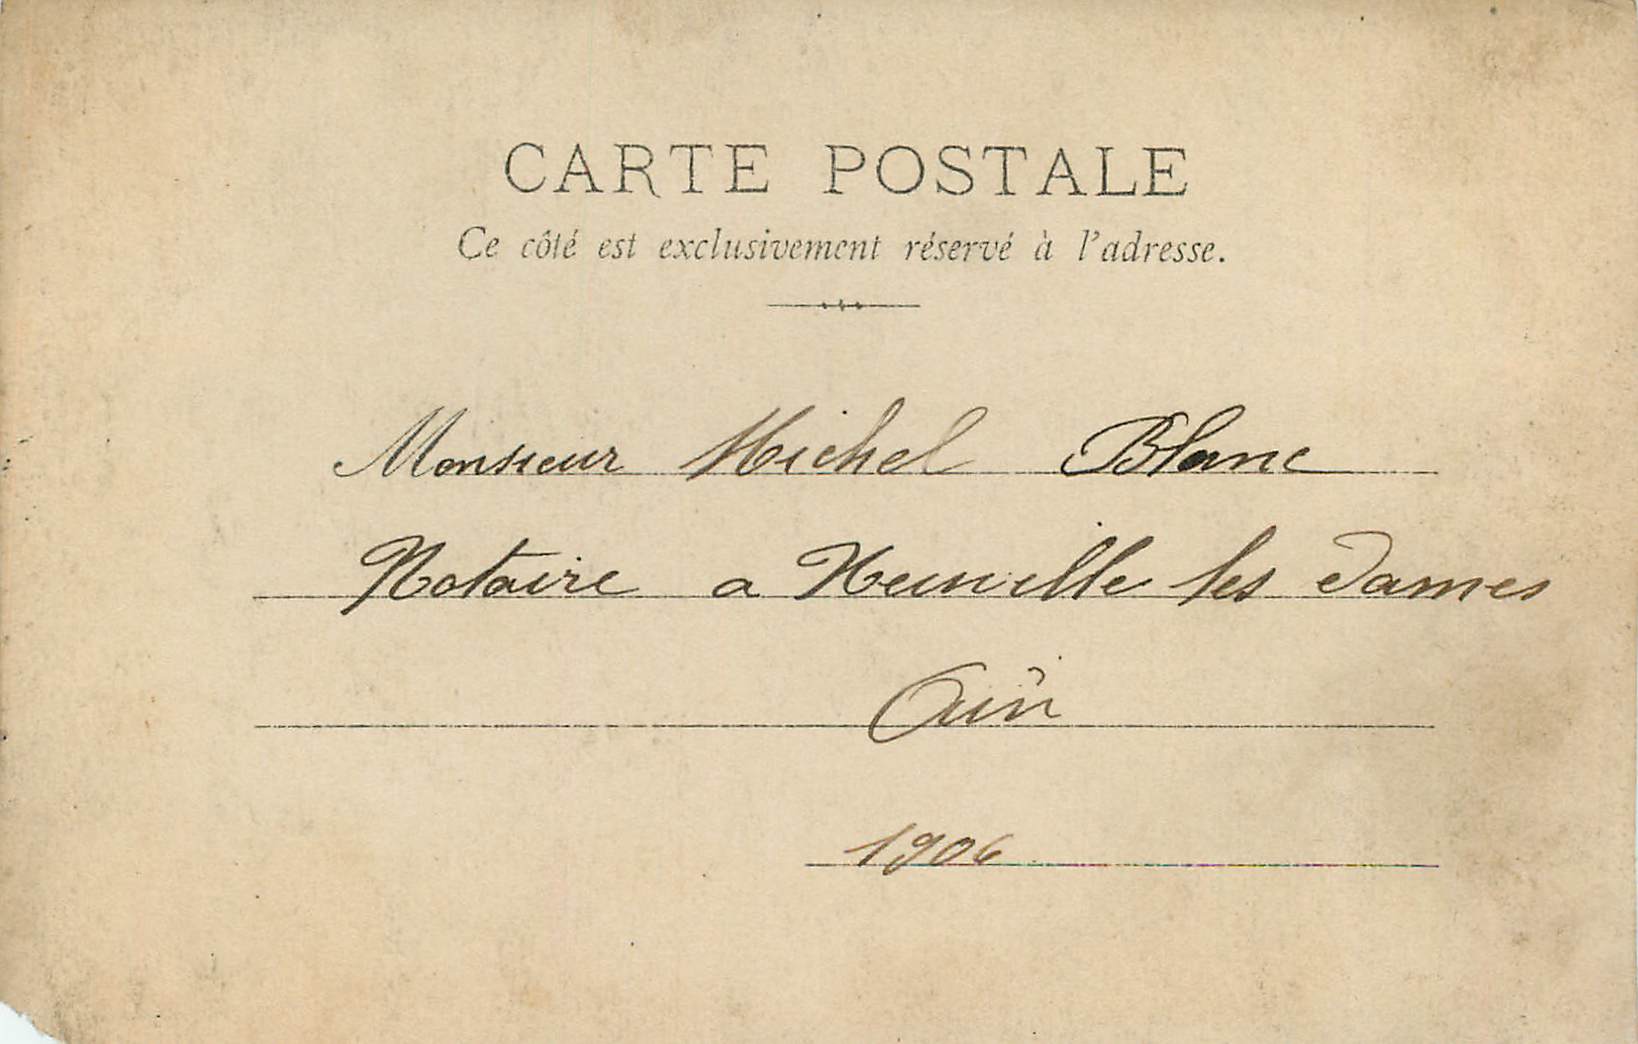 CARTE POSTALE
Ce côté est exclusivement réservé à l'adresse.
Monsieur Michel Blanc
Notaire a Neuville les Dames
Ain
1906